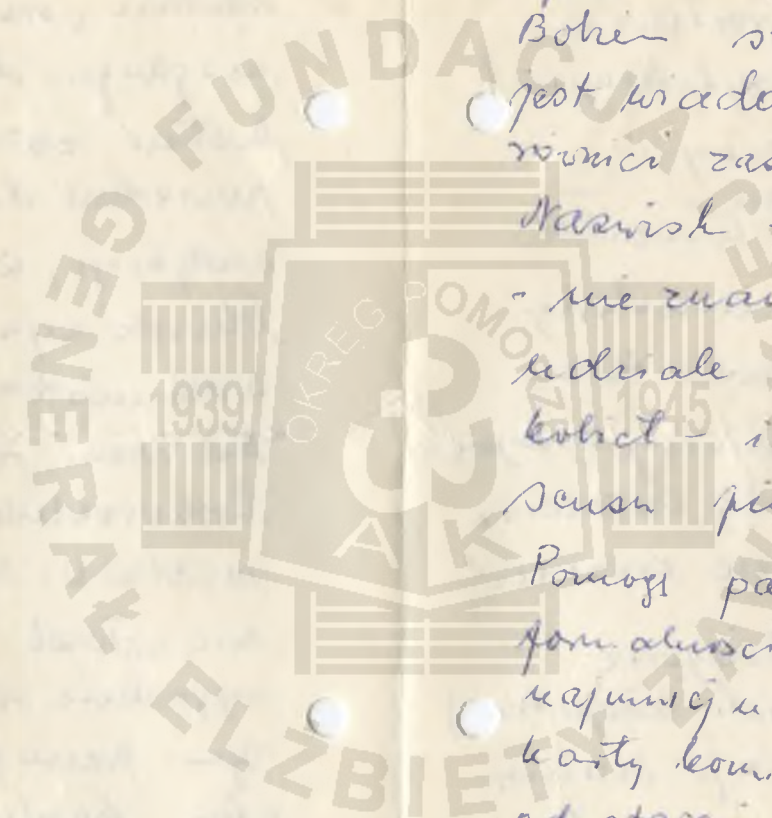 Bożem s
jest wiado
również zas
Nazwisk
- nie znam
udziale
kobiet - i
sensu
Pomogę pa
formalności
najmniej u
karty kom
od stan
FUNDACJA
GENERAŁ ELŻBIETY ZAW
OKRĘG POMORZE
1939
1945
AK